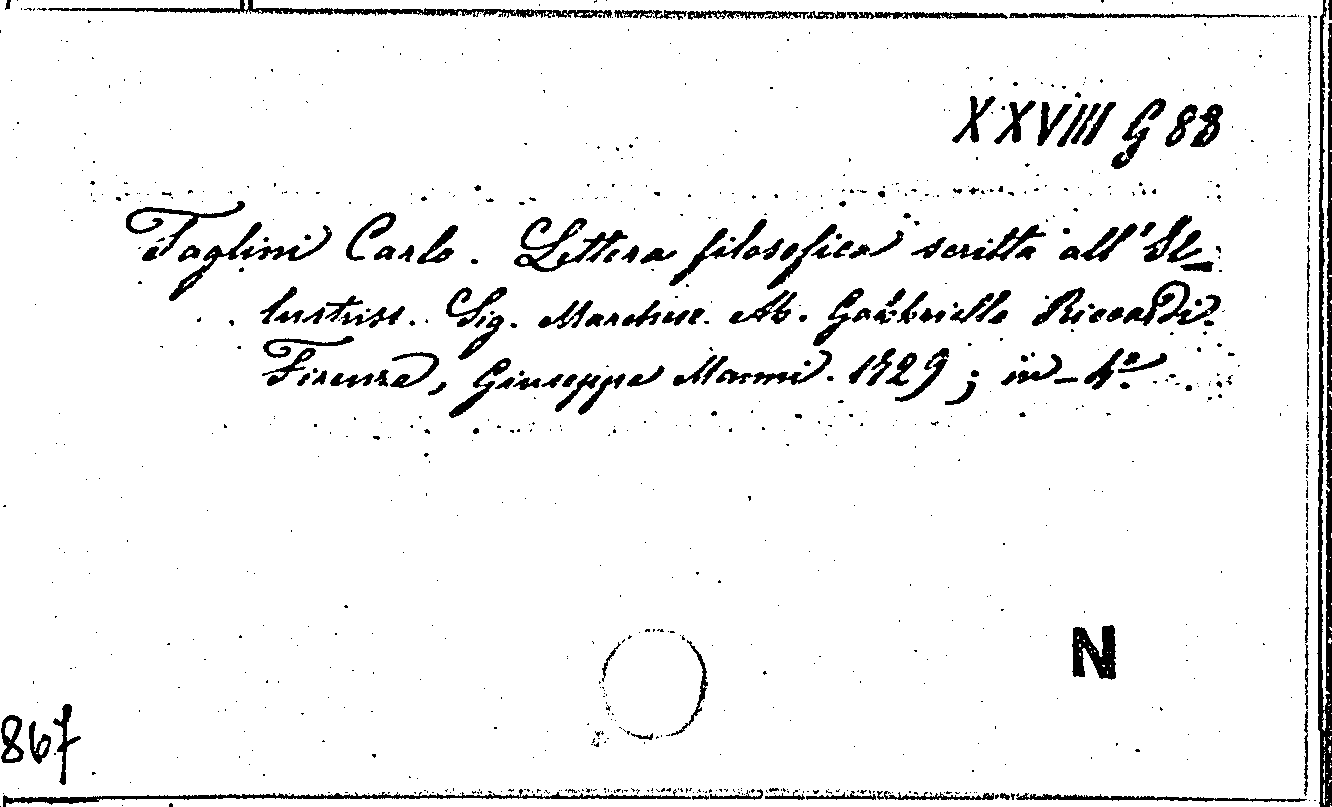 XXVIII G 88
Taglini Carlo. Lettera filosofica scritta all'Il-
lustriss. Sig. Marchese Ab. Gabbriello Riccardi.
Firenze, Giuseppe Manni. 1729; in-4°.
N
867